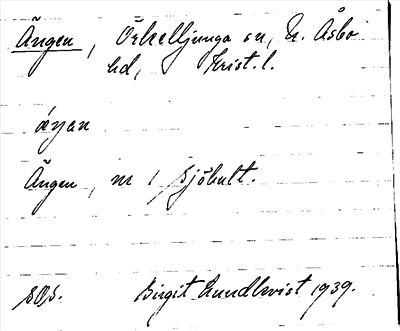 Ängen, Örkelljunga sn, N. Åsbo
hd, Krist. l.
æŋan
Ängen, m 1 Sjöhult.
SOS. Birgit Lundkvist 1939.